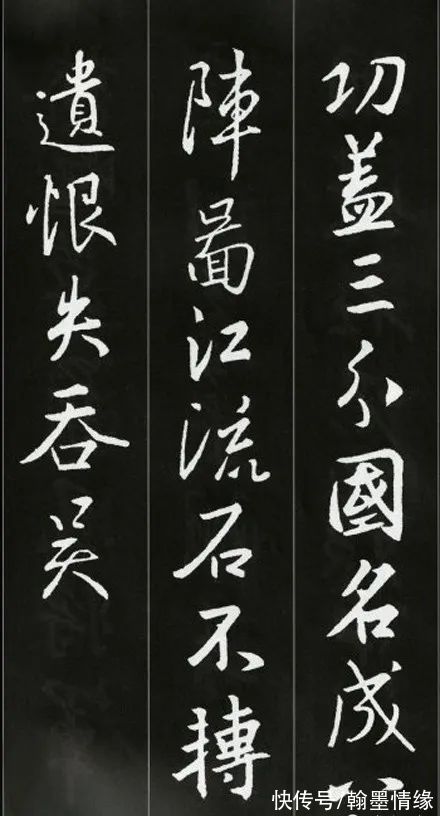 功盖三分國名成八
陣圖江流石不轉
遺恨失吞吴
快传号/翰墨情缘